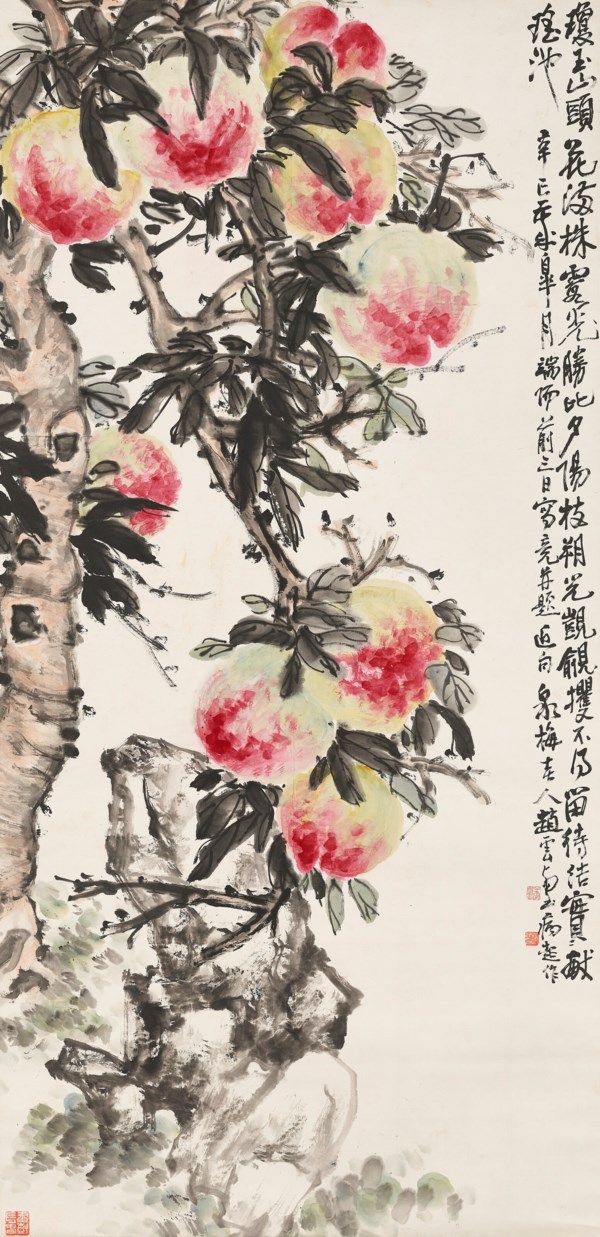 瓊玉山頭花滿株霞光勝比夕陽枝朔兒覬覦攫不得留待結實獻
瑤池
辛巳皋月端陽前三日寫竟并題泉梅老人趙雲壑病起作